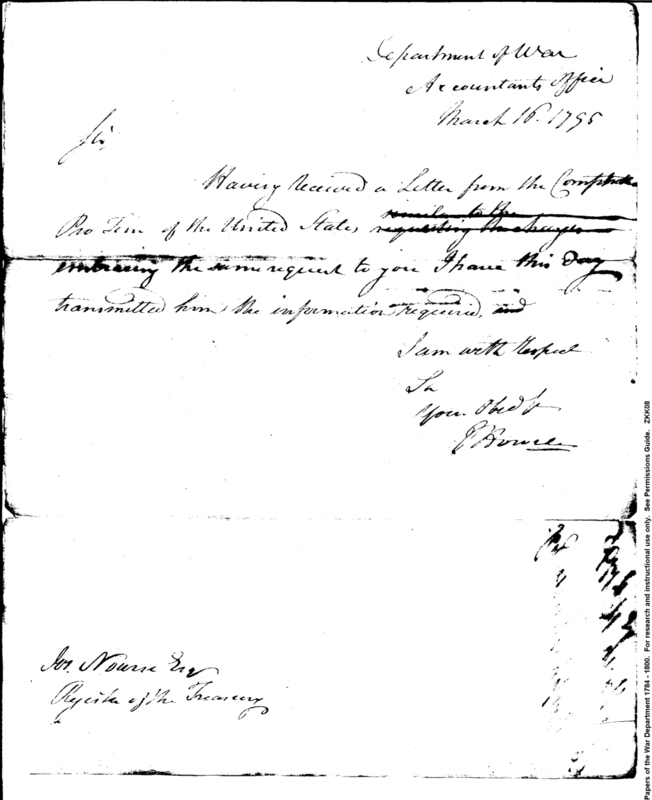 Department of War
Accountants Office
March 16. 1795
Sir,
Having Received a Letter from the Comptroller
similar to the
Pro Tem of the United States, requesting the
embracing the same request to you I have this Day
transmitted him the information required. and
I am with Respect
Sir
Your Obedt
Jos. Nourse Esq
Register of the Treasury
Papers of the War Department 1784 - 1800. For research and instructional use only. See Permissions Guide. ZKK08